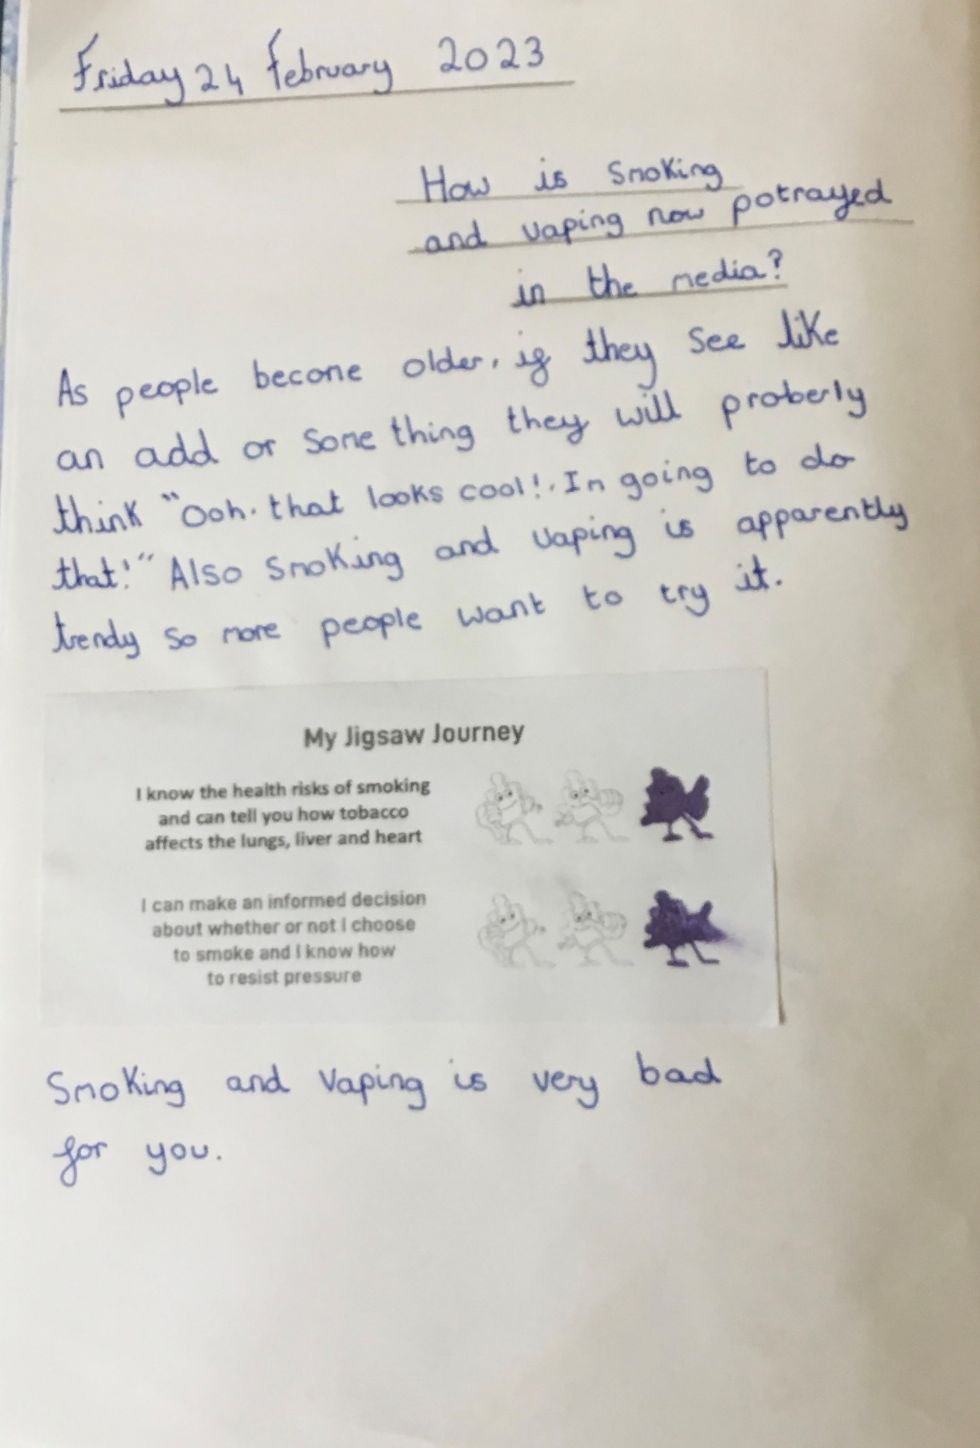 Friday 24 February 2023
How is smoking
and vaping now potrayed
in the media?
As people become older, if they see like
an add or something they will proberly
think "Ooh. that looks cool! Im going to do
that!" Also smoking and vaping is apparently
trendy so more people want to try it.
My Jigsaw Journey
I know the health risks of smoking
and can tell you how tobacco
affects the lungs, liver and heart
I can make an informed decision
about whether or not I choose
to smoke and I know how
to resist pressure
Smoking and Vaping is very bad
for you.